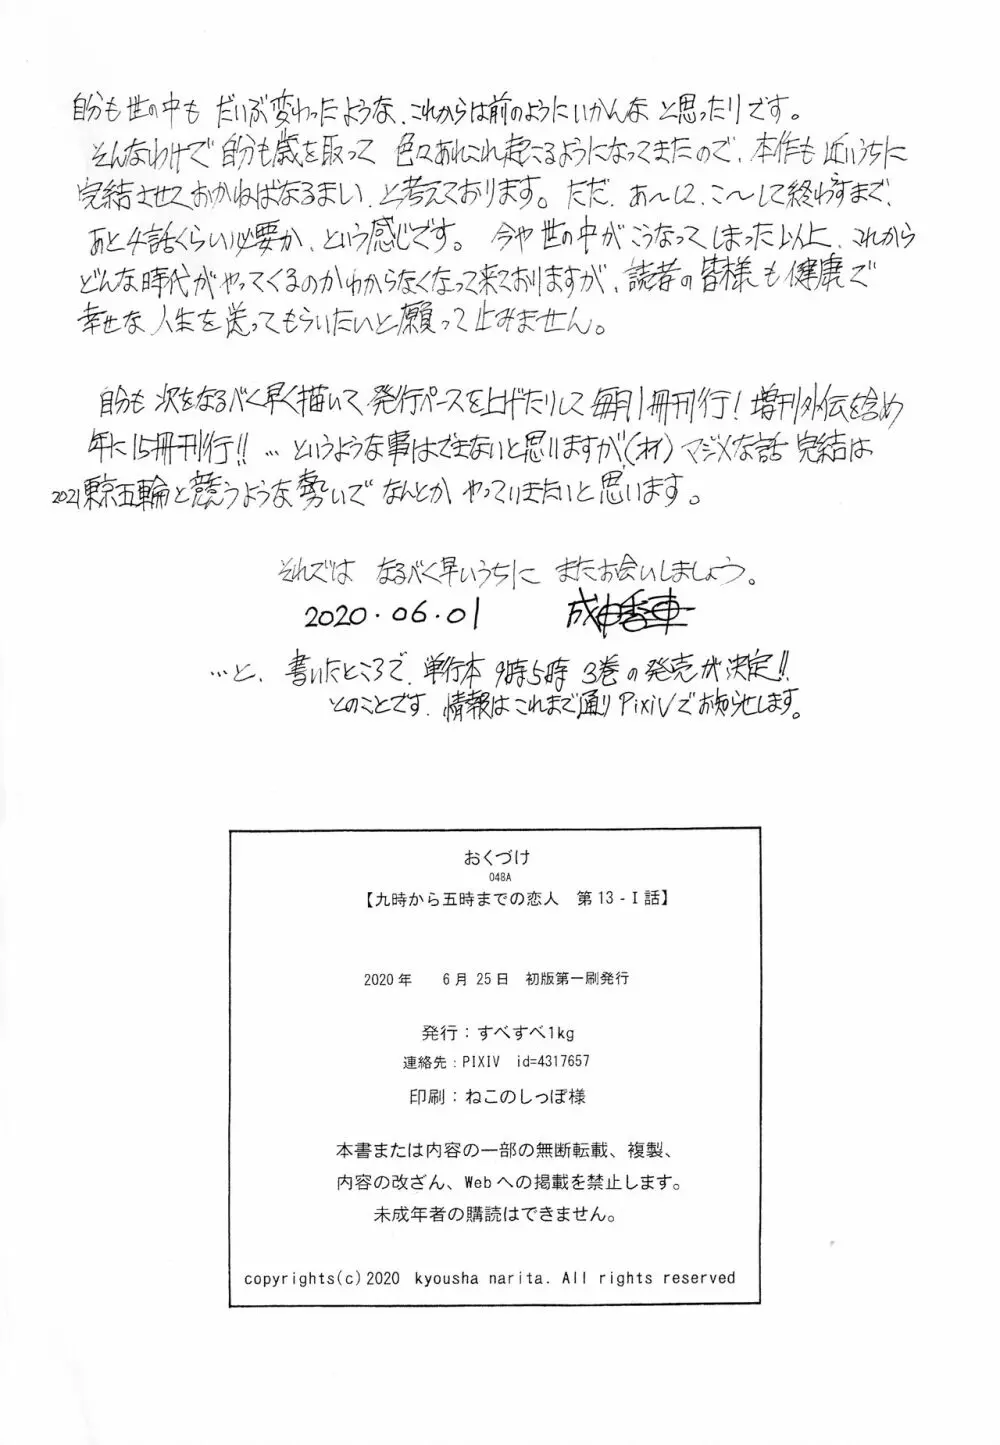 自分も世の中も だいぶ変わったような、これからは前のようにいかんな と思ったりです。
そんなわけで 自分も歳を取って 色々あれこれ起こるようになってきたので、本作も 近いうちに
完結させておかねばなるまい、と考えております。ただ、あ〜して、こ〜して終わらすまで、
あと4話くらい必要か、という感じです。 今や 世の中が こうなってしまった以上、これから
どんな時代がやってくるのかわからなくなって来ておりますが、読者の皆様も健康で
幸せな 人生を送ってもらいたいと願って止みません。
自分も 次をなるべく早く描いて、発行ペースを上げたりして 毎月1冊刊行! 増刊外伝を含め
年に15冊刊行!! …というような事はできないと思いますが(オイ) マジメな話 完結は
2021東京五輪と競うような勢いで なんとか やっていきたいと 思います。
それでは なるべく早いうちに またお会いしましょう。
2020.06.01 成田香車
…と、書いたところで、単行本 9時5時 3巻の発売が決定!!
とのことです、情報はこれまで通り Pixivでお知らせします。
おくづけ
048A
【九時から五時までの恋人 第13-Ⅰ話】
2020年 6月25日 初版第一刷発行
発行：すべすべ1kg
連絡先：PIXIV id=4317657
印刷：ねこのしっぽ様
本書または内容の一部の無断転載、複製、
内容の改ざん、Webへの掲載を禁止します。
未成年者の購読はできません。
copyrights(c)2020 kyousha narita. All rights reserved